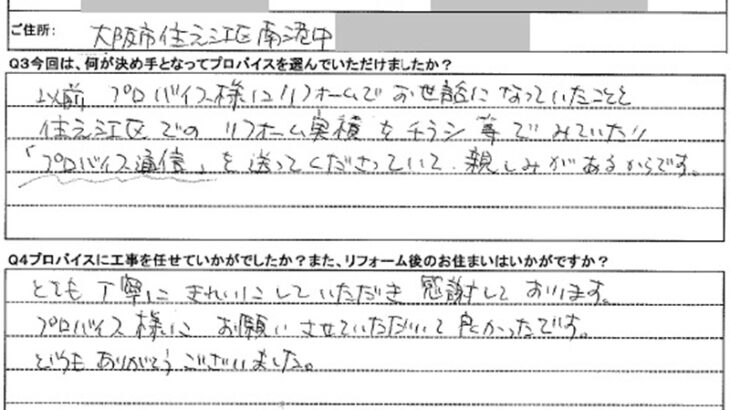 ご住所: 大阪市住之江区南港中
Q3今回は、何が決め手となってプロバイスを選んでいただけましたか？
以前 プロバイス様にリフォームでお世話になっていたことと
住之江区でのリフォーム実積をチラシ等でみていたり
「プロバイス通信」を送ってくださっていて、親しみがあるからです。
Q4プロバイスに工事を任せていかがでしたか？また、リフォーム後のお住まいはいかがですか？
とても丁寧にきれいにしていただき感謝しております。
プロバイス様にお願いさせていただいて良かったです。
どうもありがとうございました。